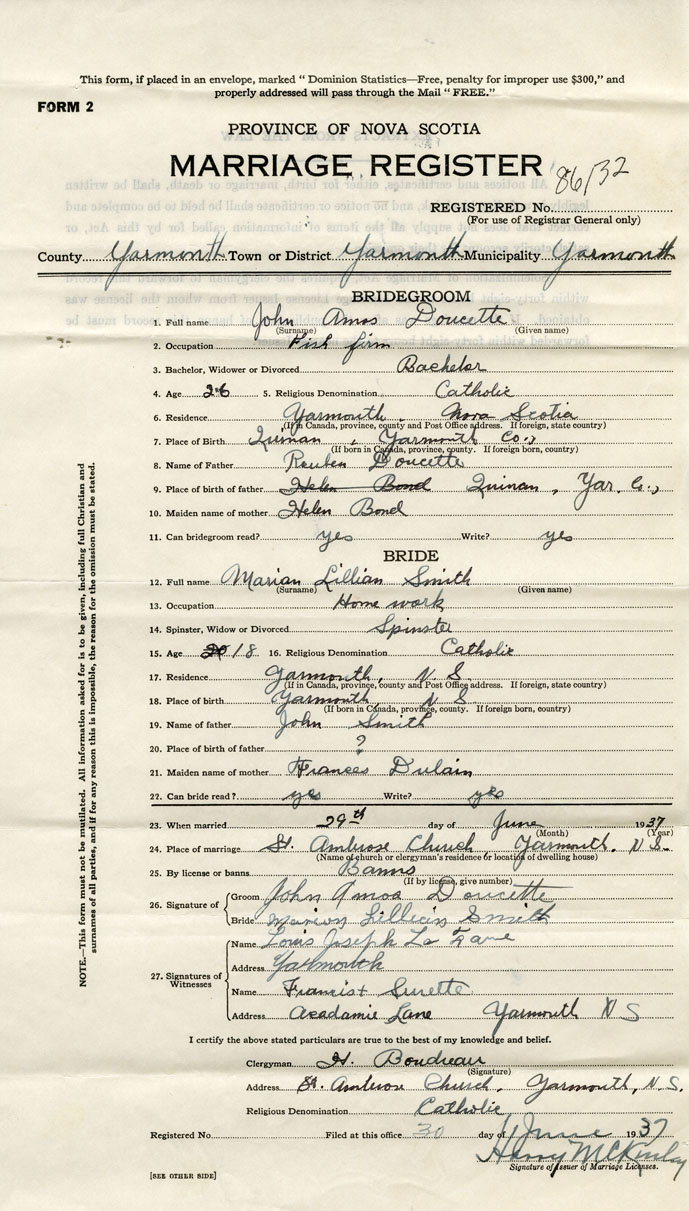 This form, if placed in an envelope, marked “ Dominion Statistics—Free, penalty for improper use $300,” and
properly addressed will pass through the Mail “ FREE.”
FORM 2
PROVINCE OF NOVA SCOTIA
MARRIAGE REGISTER 86/32
REGISTERED No.
(For use of Registrar General only)
County Yarmouth Town or District Yarmouth Municipality Yarmouth
BRIDEGROOM
1. Full name John Amos Doucette
(Surname) (Given name)
2. Occupation Fish firm
3. Bachelor, Widower or Divorced Bachelor
4. Age 26 5. Religious Denomination Catholic
6. Residence Yarmouth, Nova Scotia
(If in Canada, province, county and Post Office address. If foreign, state country)
7. Place of Birth Quinan, Yarmouth Co.,
(If born in Canada, province, county. If foreign born, country)
8. Name of Father Reuben Doucette
9. Place of birth of father Helen Bond Quinan, Yar. Co.,
10. Maiden name of mother Helen Bond
11. Can bridegroom read? yes Write? yes
BRIDE
12. Full name Marian Lillian Smith
(Surname) (Given name)
13. Occupation Home work
14. Spinster, Widow or Divorced Spinster
15. Age 18 16. Religious Denomination Catholic
17. Residence Yarmouth, N.S.
(If in Canada, province, county and Post Office address. If foreign, state country)
18. Place of birth Yarmouth, N.S.
(If born in Canada, province, county. If foreign born, country)
19. Name of father John Smith
20. Place of birth of father ?
21. Maiden name of mother Frances Dulain
22. Can bride read? yes Write? yes
23. When married 29th day of June 1937
(Month) (Year)
24. Place of marriage St. Ambrose Church Yarmouth, N.S.
(Name of church or clergyman's residence or location of dwelling house)
25. By license or banns Banns
(If by license, give number)
26. Signature of Groom John Amos Doucette
Bride Marion Lillian Smith
27. Signatures of Witnesses
Name Louis Joseph
Address Yarmouth
Name Francis Surette
Address Acadamie Lane Yarmouth N S
I certify the above stated particulars are true to the best of my knowledge and belief.
Clergyman H. Boudreau
(Signature)
Address St. Ambrose Church, Yarmouth, N.S.
Religious Denomination Catholic
Registered No. Filed at this office 30 day of June 1937
Harry McKinlay
Signature of Issuer of Marriage Licenses.
[SEE OTHER SIDE]
NOTE.—This form must not be mutilated. All information asked for is to be given, including full Christian and
surnames of all parties, and if for any reason this is impossible, the reason for the omission must be stated.